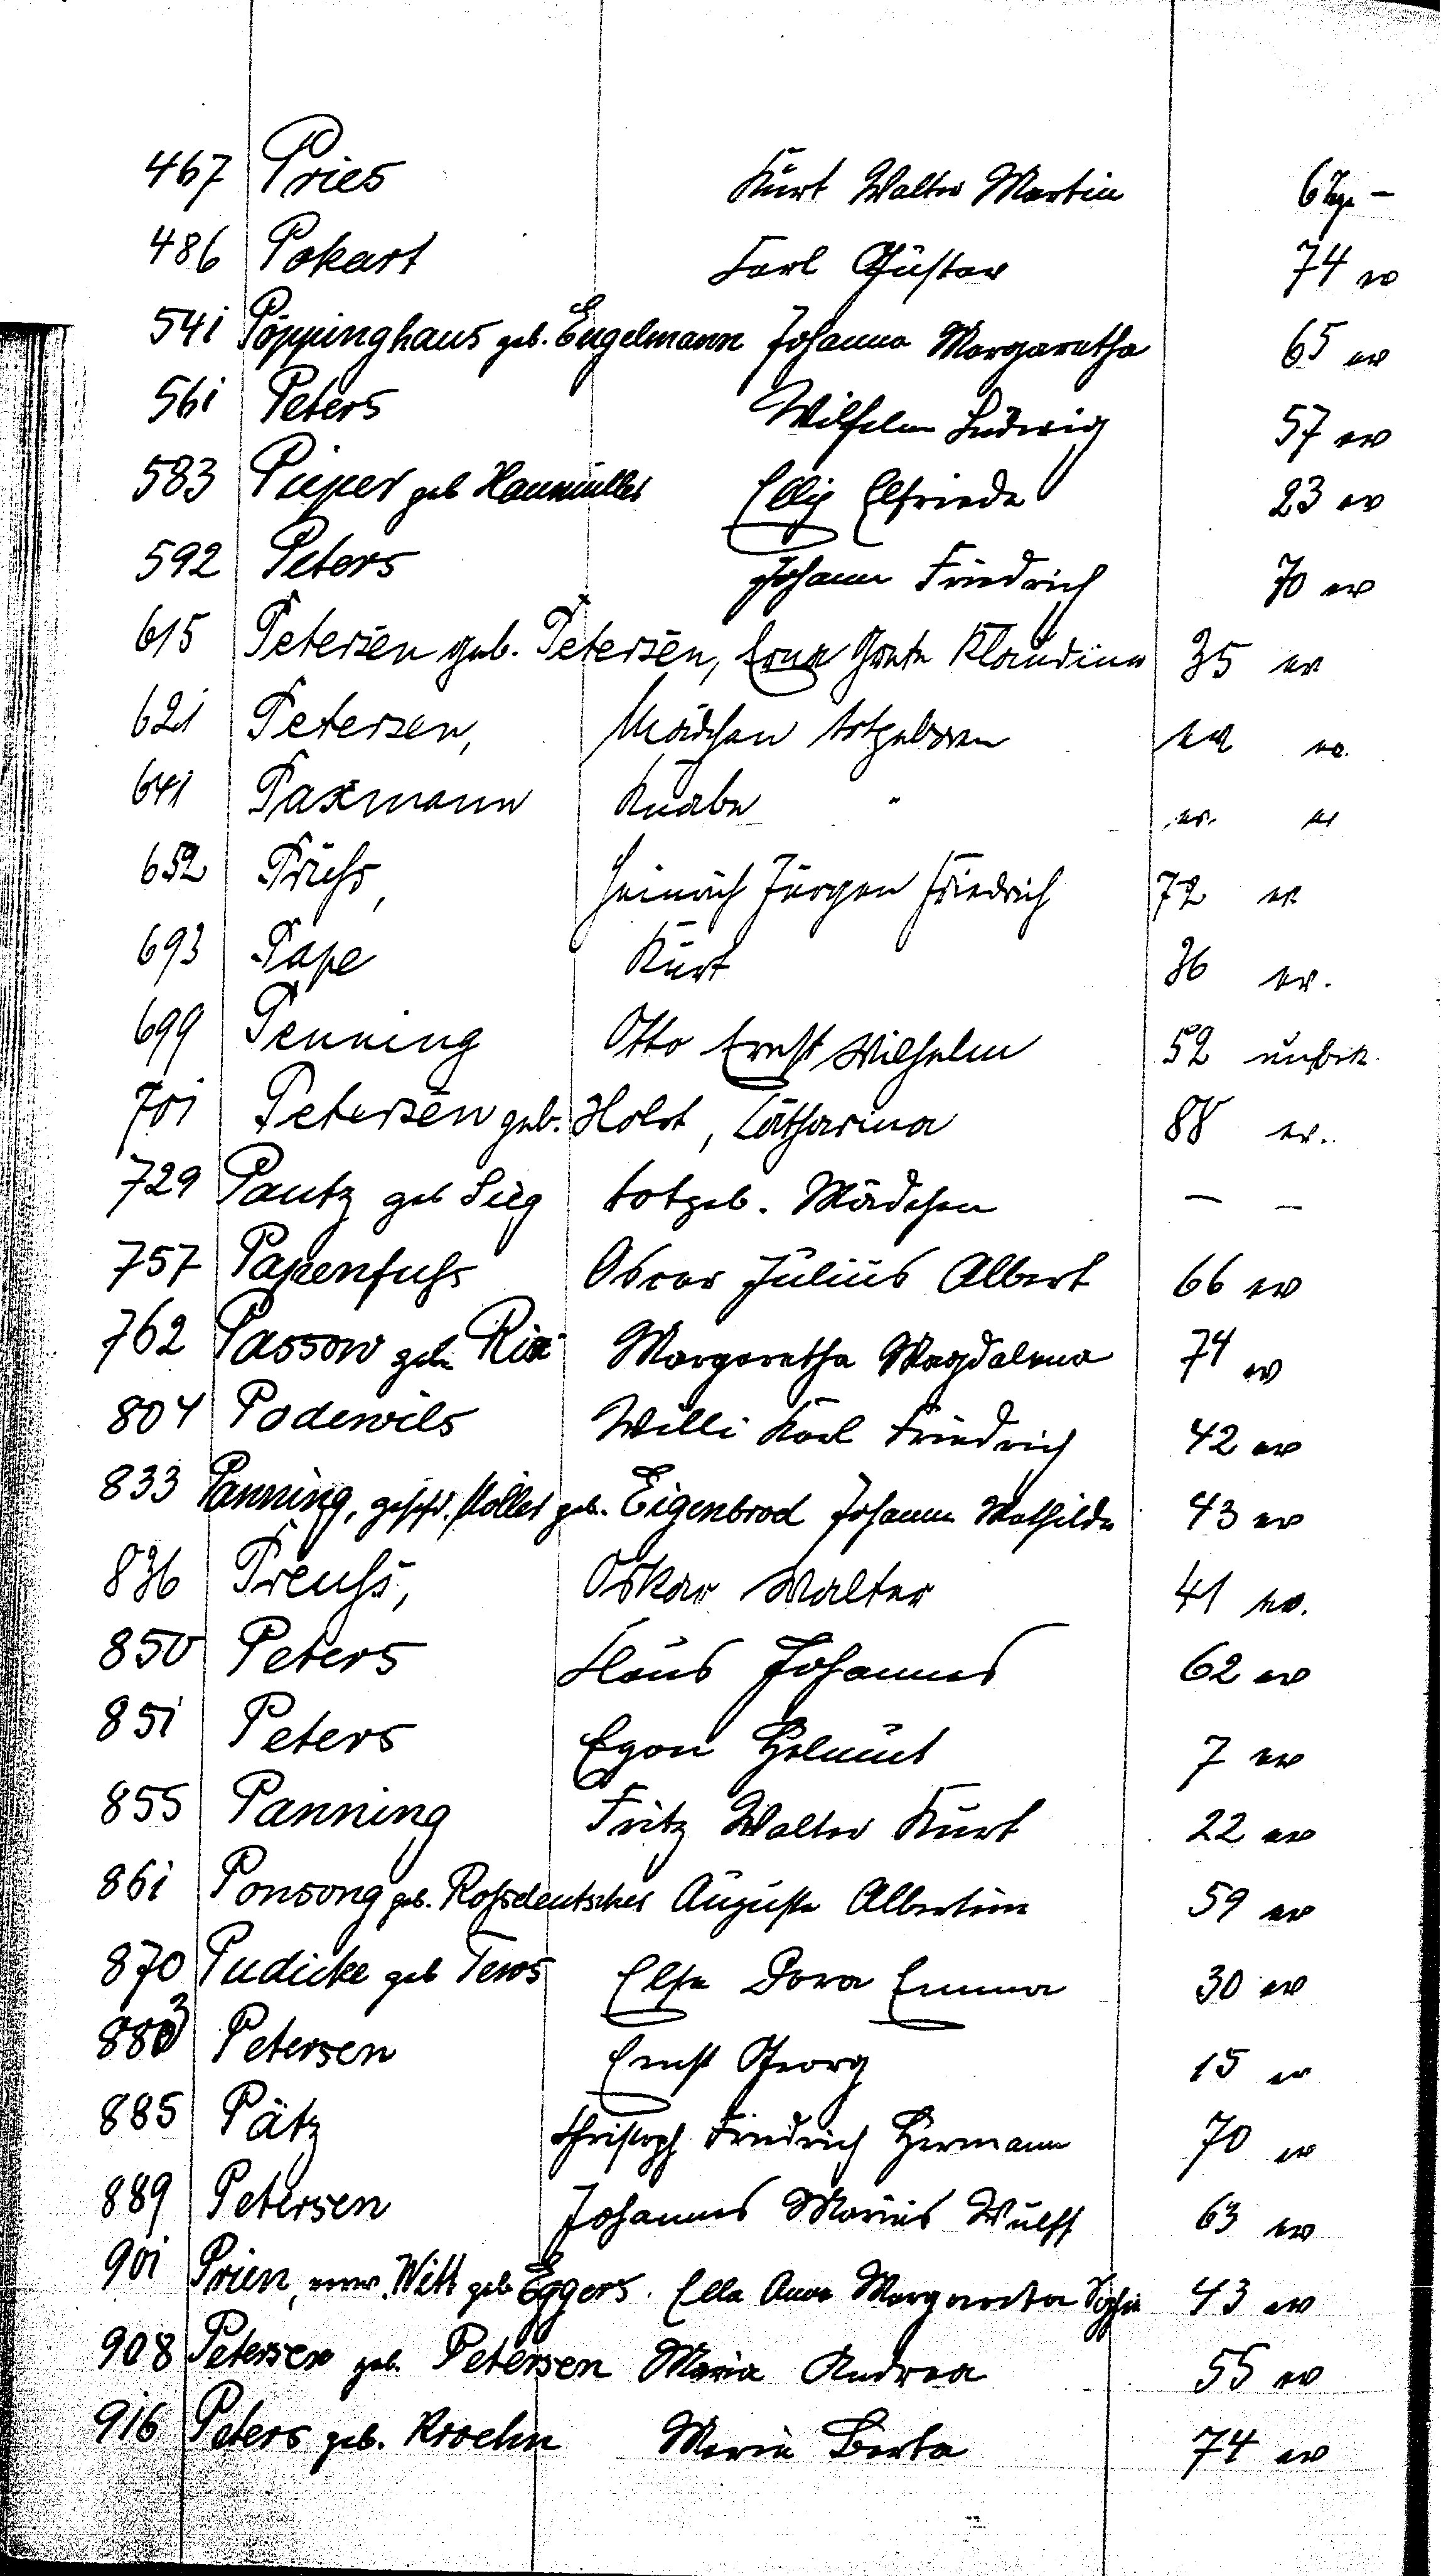 467 Pries Kurt Walter Martin 6 Tge -
486 Pokart Karl Gustav 74 ev
541 Pöppinghaus geb. Engelmann Johanna Margaretha 65 ev
561 Peters Wilhelm Ludwig 57 ev
583 Pieper geb Haumüller Elly Elfriede 23 ev
592 Peters Johann Friedrich 70 ev
615 Petersen geb. Petersen, Erna Grete Klaudina 35 ev
621 Petersen, Mädchen totgeboren
641 Paxmann Knabe "
652 Prüss, Heinrich Jürgen Friedrich 72 ev
693 Pape Kurt 36 ev.
699 Penning Otto Ernst Wilhelm 52 unbek.
701 Petersen geb. Holst, Catharina 88 ev.
729 Pautz geb Sieg totgeb. Mädchen — –
757 Papenfuhs Oscar Julius Albert 66 ev
762 Passow geb. Rix Margaretha Magdalena 74 ev
804 Podewils Willi Karl Friedrich 42 ev
833 Panning, gesch. Möller geb. Eigenbrod Johanna Mathilde 43 ev
836 Preuhs, Oskar Walter 41 ev.
850 Peters Klaus Johannes 62 ev
851 Peters Egon Helmut 7 ev
855 Panning Fritz Walter Kurt 22 ev
861 Ponsong geb. Rohsdeutscher Auguste Albertine 59 ev
870 Pudicke geb Tews Else Dora Emma 30 ev
883 Petersen Ernst Georg 15 ev
885 Pätz Christoph Friedrich Hermann 70 ev
889 Petersen Johannes Marius Wulff 63 ev
901 Prien, verw. Witt geb Eggers. Ella Anna Margareta Sophie 43 ev
908 Petersen geb. Petersen Maria Andrea 55 ev
916 Peters geb. Kroehn Maria Berta 74 ev